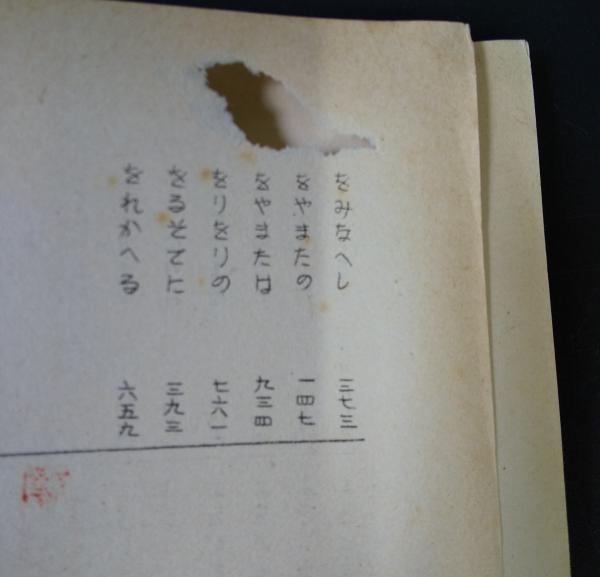 をみなへし 三七三
をやまたの 一四七
をやまたは 九三四
をりをりの 七六一
をるそてに 三九三
をれかへる 六五九